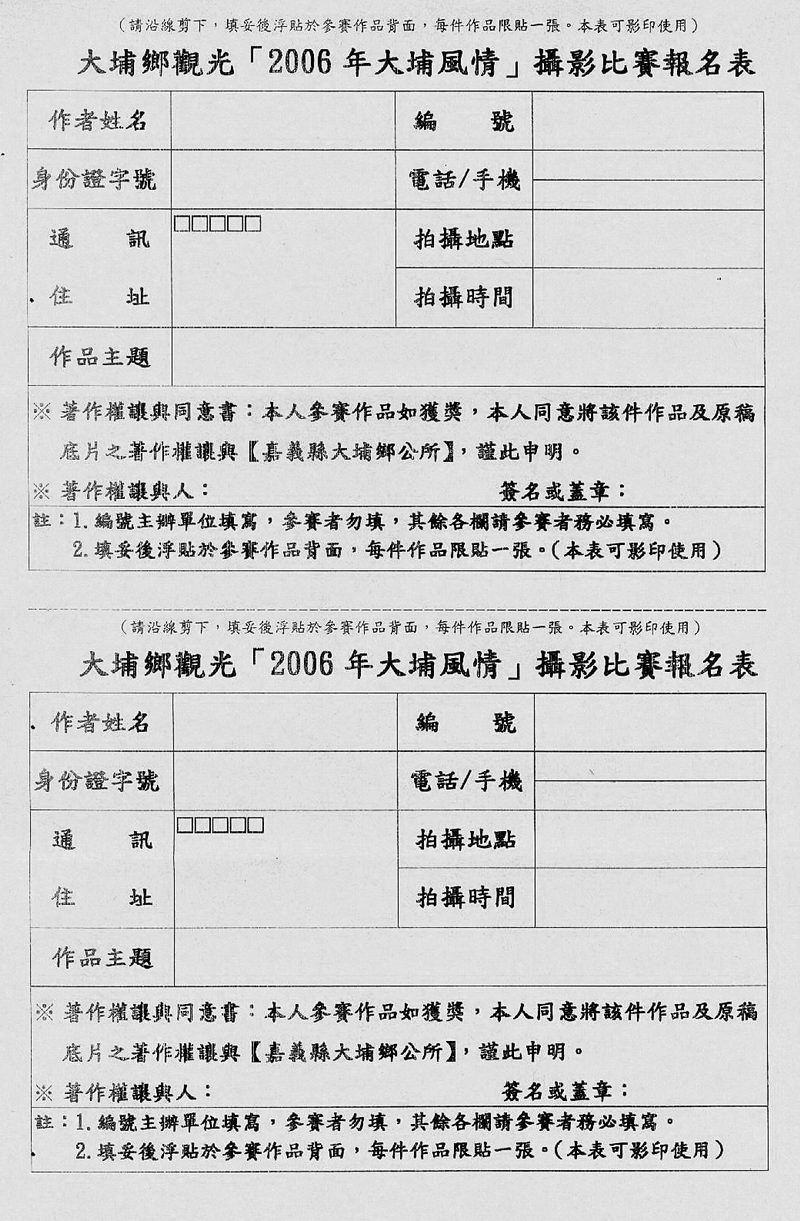 (請沿線剪下，填妥後浮貼於參賽作品背面，每件作品限貼一張。本表可影印使用)
大埔鄉觀光「2006年大埔風情」攝影比賽報名表
作者姓名 編號
身份證字號 電話/手機
通訊 □□□□□ 拍攝地點
住址 拍攝時間
作品主題
※ 著作權讓與同意書：本人參賽作品如獲獎，本人同意將該件作品及原稿
底片之著作權讓與【嘉義縣大埔鄉公所】，謹此申明。
※ 著作權讓與人： 簽名或蓋章：
註：1.編號主辦單位填寫，參賽者勿填，其餘各欄請參賽者務必填寫。
2.填妥後浮貼於參賽作品背面，每件作品限貼一張。(本表可影印使用)
(請沿線剪下，填妥後浮貼於參賽作品背面，每件作品限貼一張。本表可影印使用)
大埔鄉觀光「2006年大埔風情」攝影比賽報名表
作者姓名 編號
身份證字號 電話/手機
通訊 □□□□□ 拍攝地點
住址 拍攝時間
作品主題
※ 著作權讓與同意書：本人參賽作品如獲獎，本人同意將該件作品及原稿
底片之著作權讓與【嘉義縣大埔鄉公所】，謹此申明。
※ 著作權讓與人： 簽名或蓋章：
註：1.編號主辦單位填寫，參賽者勿填，其餘各欄請參賽者務必填寫。
2.填妥後浮貼於參賽作品背面，每件作品限貼一張。(本表可影印使用)